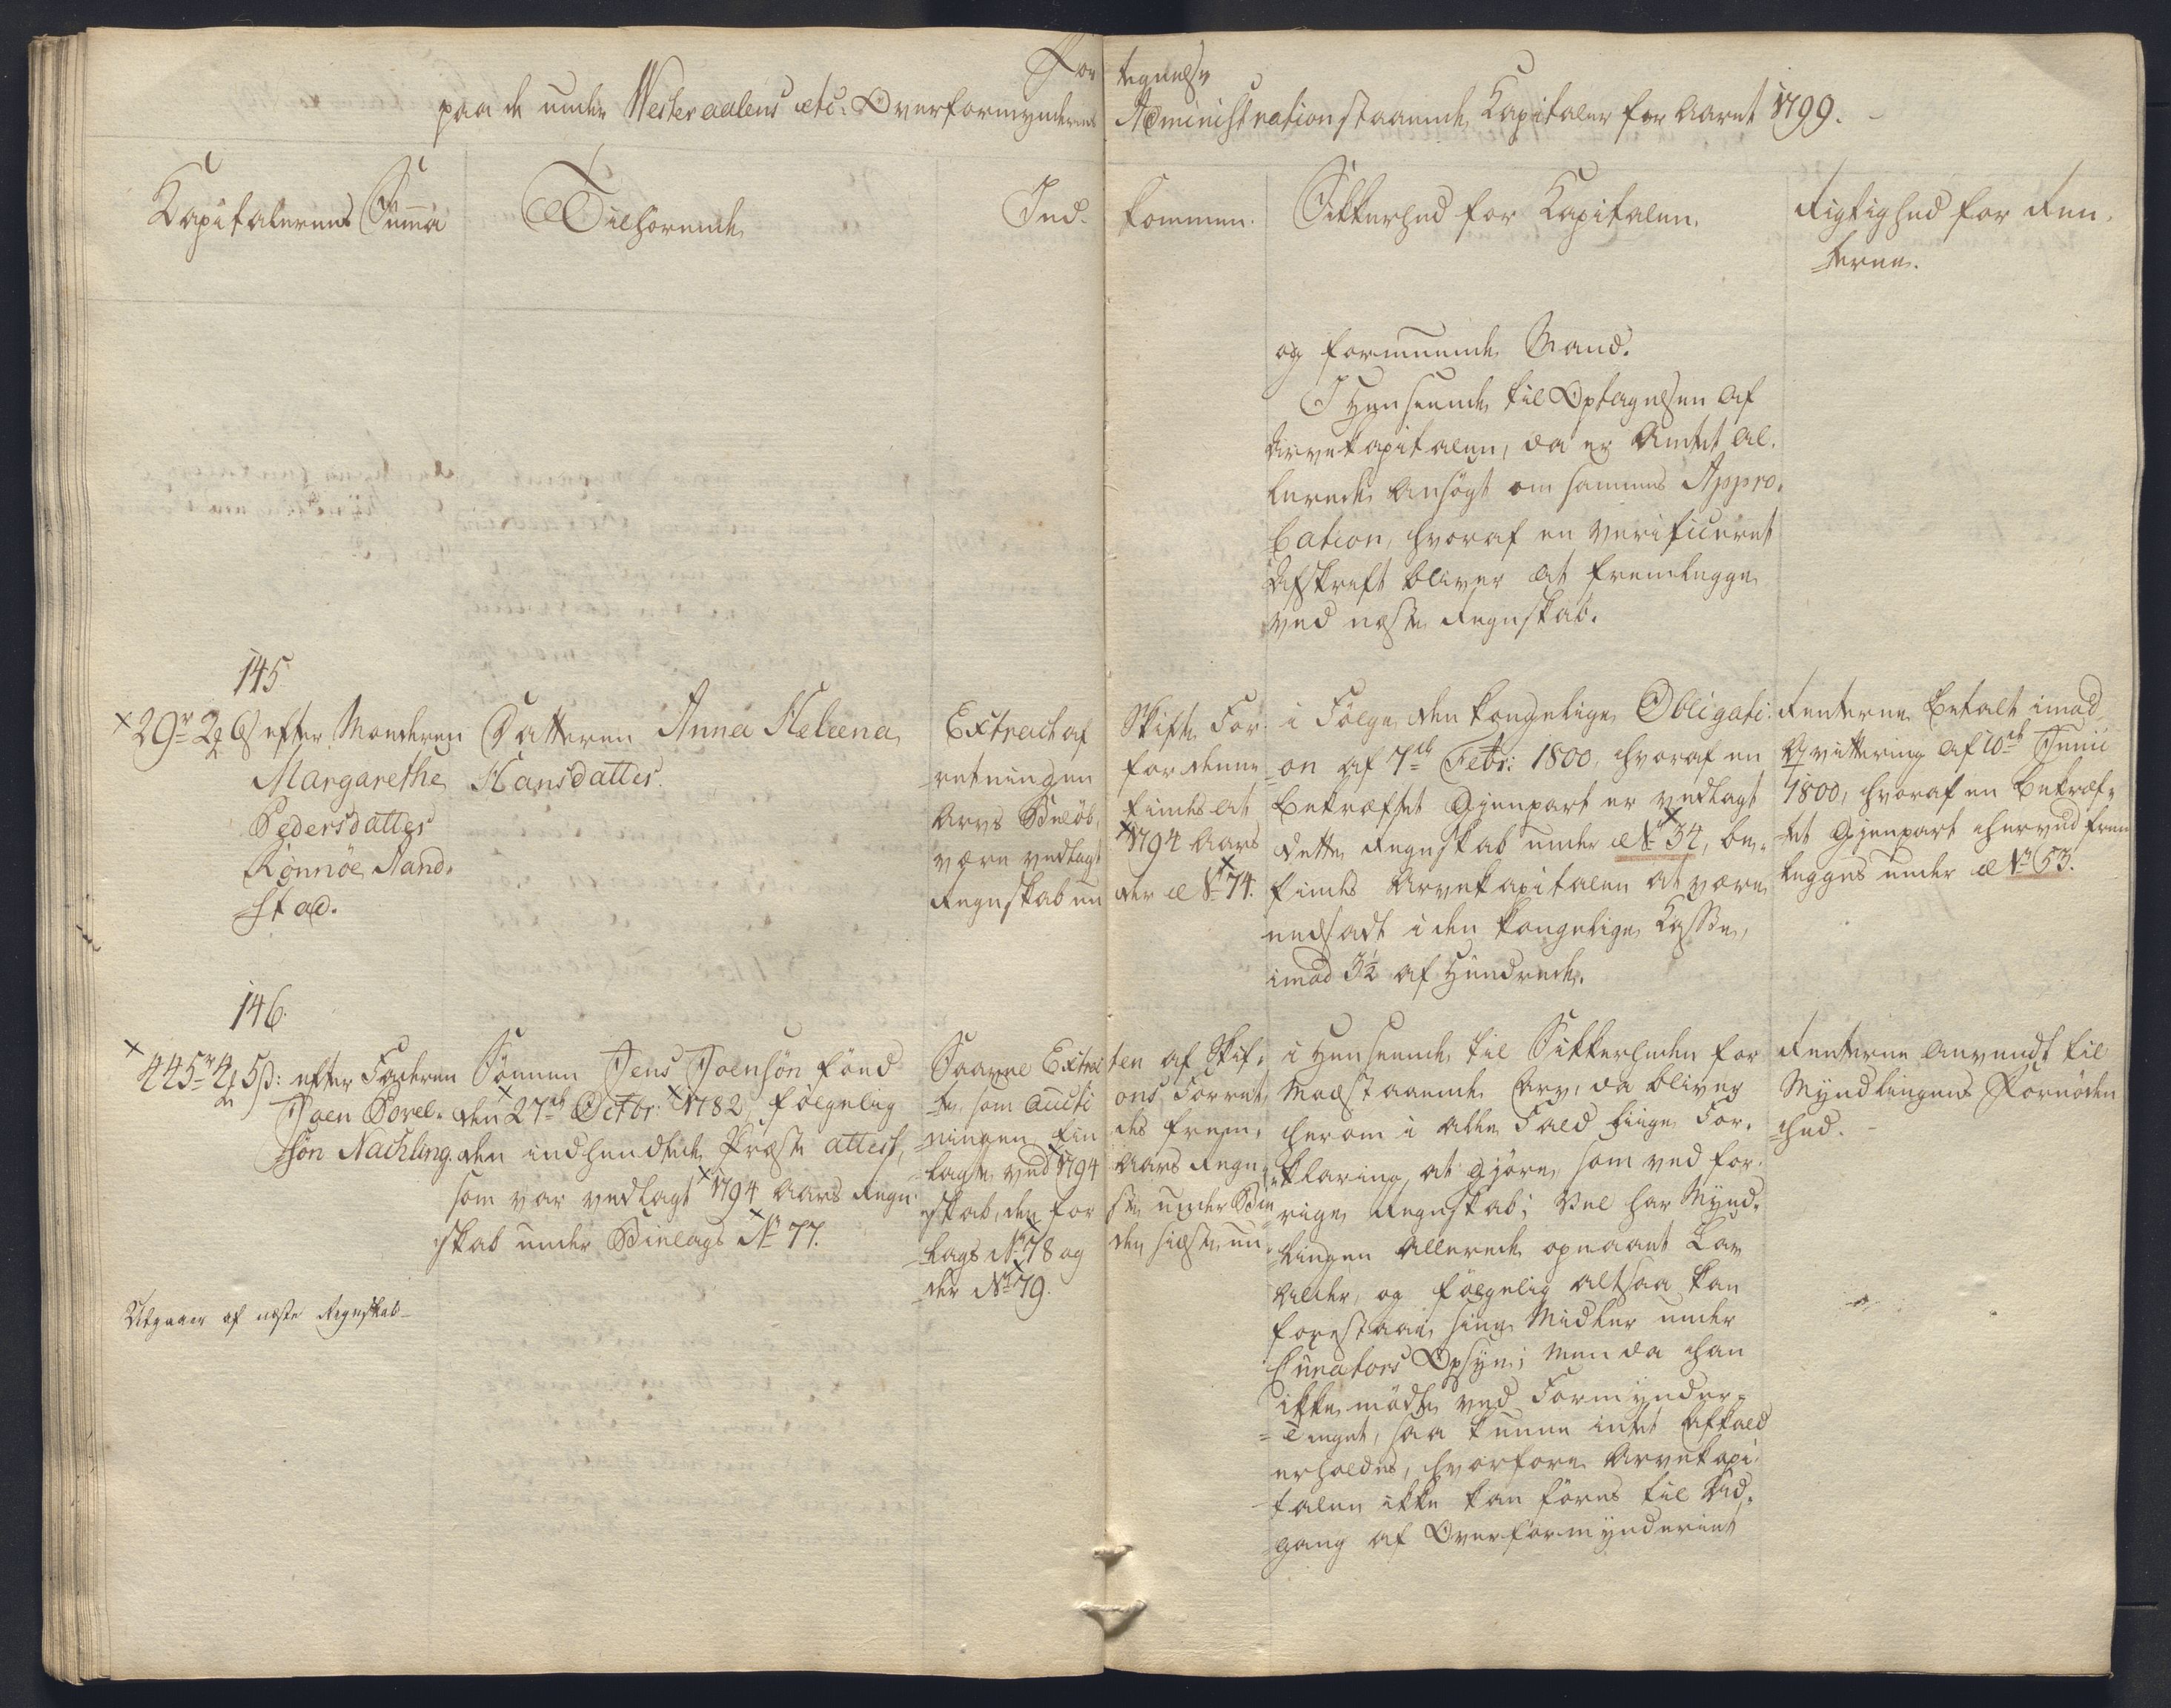 For tegnelse
paa de under Westeraalens etc: Overformynderens Administration staaende Kapitaler for Aaret 1799.
Kapitalernes Summa
Tilhørende
Ind- kommen.
Sikkerhed for Kapitalen.
Rigtighed for Ren-
terne.
og formuende Mand.
I Henseende til Optagelsen af
Arvekapitalen, da er Amtet al-
lerede ansøgt om sammes Appro-
bation, hvoraf en verificeret
Afskrift bliver at fremlegge
ved næste Regnskab.
145
29 r 2 ß efter Moderen
Margarethe
Pedersdatter
Rønnøe Sand-
stad.
Datteren Anna Helena
Hansdatter.
Extract af Skifte For-
retningen for denne
Arvs Beløb, findes at
være vedlagt 1794 Aars
Regnskab un der No 74.
i Følge den kongelige Obligati-
on af 7de Febr: 1800, hvoraf en
bekræftet Gjenpart er vedlagt
dette Regnskab under No 34, be-
findes Arvekapitalen at være
nedsadt i den kongelige Kasse,
imod 3½ af Hundrede.
Renterne betalt imod
Qvittering af 10de Junii
1800, hvoraf en bekræf-
tet Gjenpart herved frem
legges under No 53.
146.
445 r 4 5 ß: efter Faderen
Joen Borel-
søn Nachling.
Sønnen Jens Joensøn fønd
den 27de Octbr: 1782, følgelig
den indhendtede Præste attest,
som var vedlagt 1794 Aars Regn-
skab under Bielags No 77.
Saavel Extrac ten af Skif-
te, som Aucti ons Forret-
ningen fin des frem-
lagte ved 1794 Aars Regn-
skab, den før ste under Bie
lags No 78 og den sidste un-
der No 79.
i Henseende til Sikkerheden for
modstaaende Arv, da bliver
herom i alle Fald liige For-
klaring at gjøre, som ved for-
rige Regnskab; Vel har Mynd-
lingen allerede opnaaet Lav
Alder, og følgelig altsaa kan
forestaae sine Midler under
Curators Opsyn; men da han
ikke mødte ved Formynder-
Tinget, saa kunne intet Afkald
erholdes, hvorfore Arvekapi-
talen ikke kan føres til Ud-
gang af Overformynderiet
Renterne anvendt til
Myndlingens Fornøden
hed.
Udgaaer af næste Regnskab